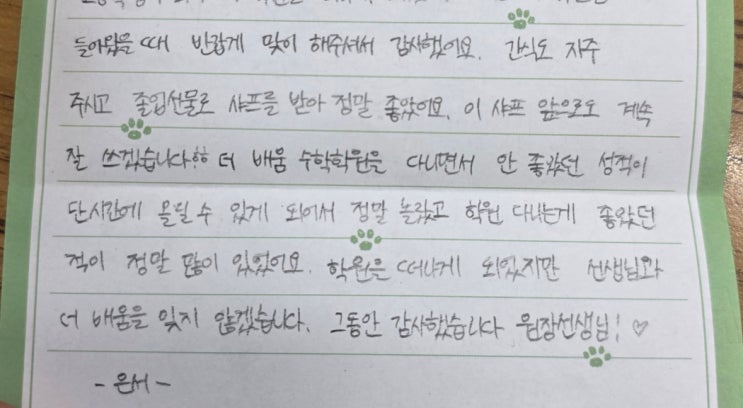 들어왔을 때 반갑게 맞이 해주셔서 감사했어요. 간식도 자주
주시고 졸업선물로 샤프를 받아 정말 좋았어요. 이 샤프 앞으로도 계속
잘 쓰겠습니다ㅎㅎ 더 배움 수학학원을 다니면서 안 좋았던 성적이
단시간에 올릴 수 있게 되어서 정말 놀랐고 학원 다니는게 좋았던
적이 정말 많이 있었어요. 학원은 떠나게 되었지만 선생님과
더 배움을 잊지 않겠습니다. 그동안 감사했습니다 원장선생님! ♡
- 은서 -